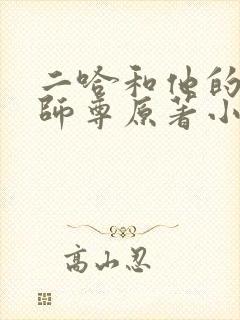 二哈和他的
師尊原著小
高山忍